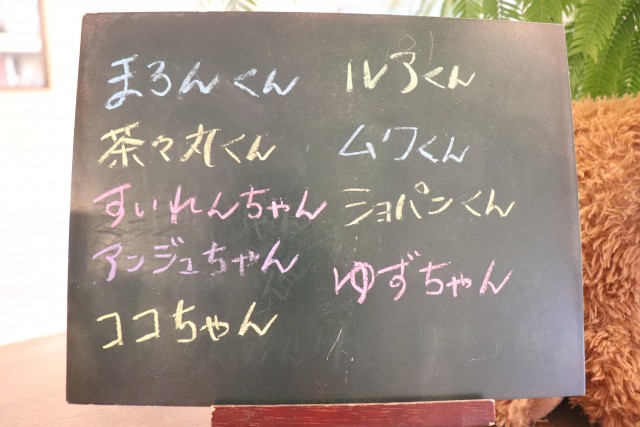 まろんくん
茶々丸くん
すいれんちゃん
アンジュちゃん
ココちゃん
ルアくん
ムワくん
ショパンくん
ゆずちゃん